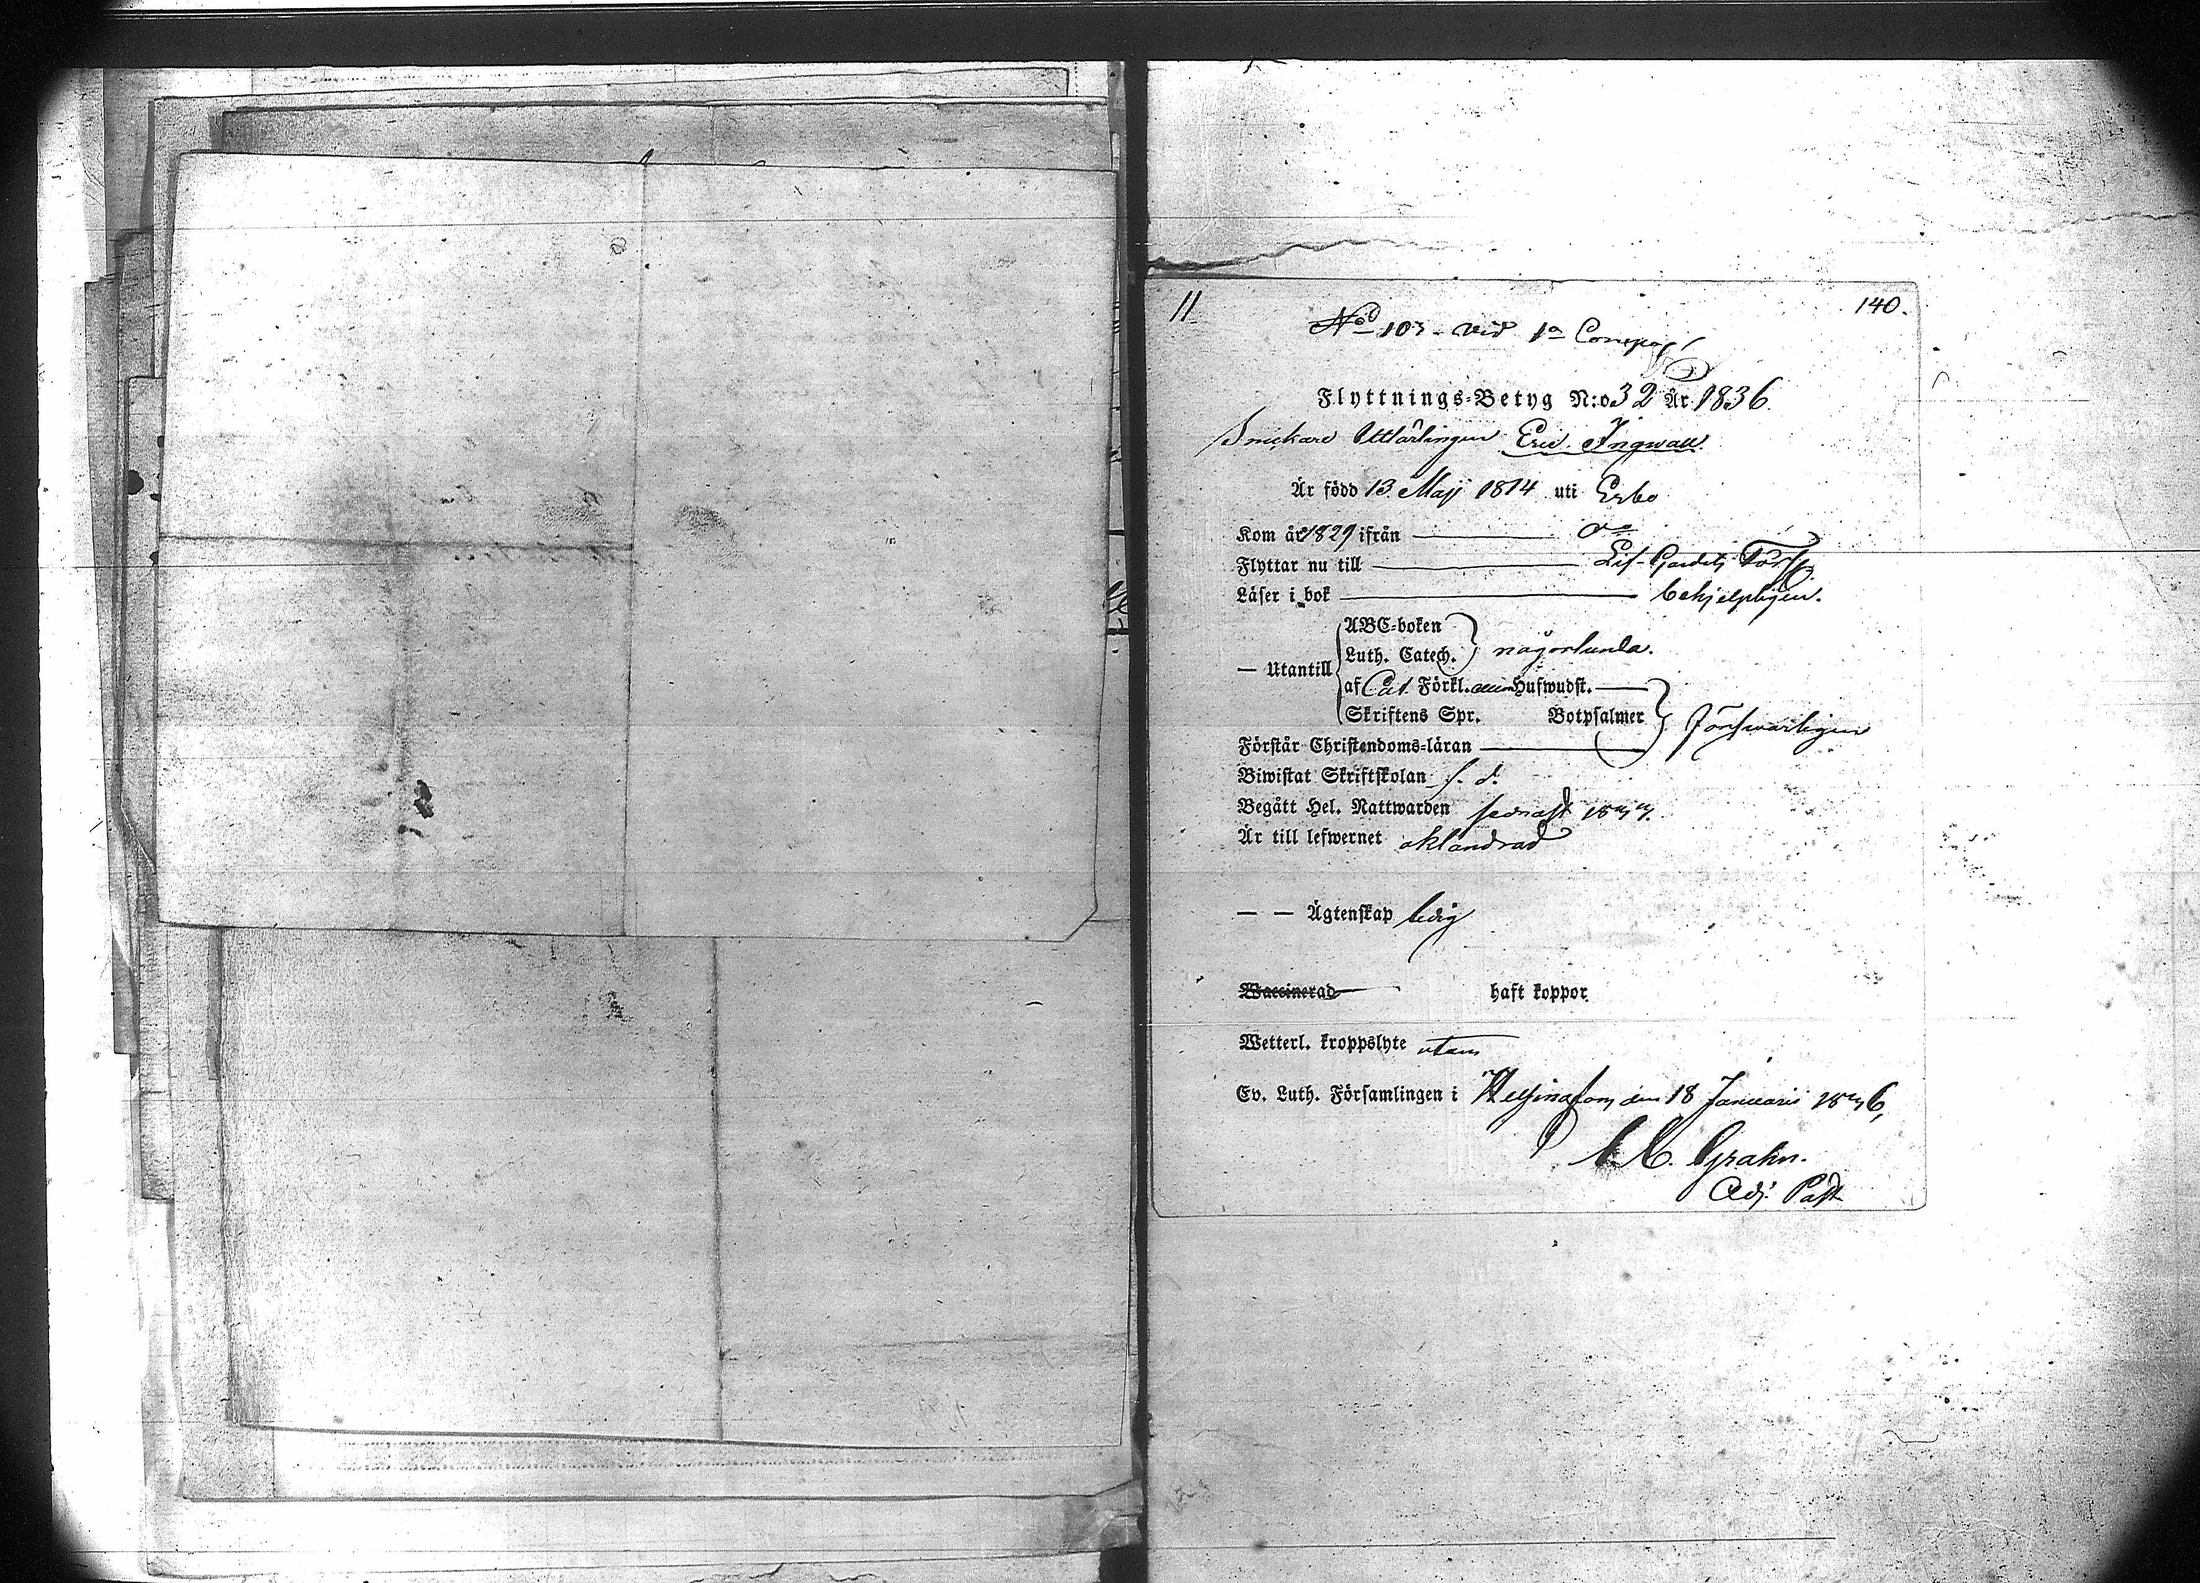 11
140.
No 103 vid 1a Comp.
Flyttnings-Betyg N:o 32 År 1836.
Snickare Utlärlingen Eric Ingwall
Är född 13 Maji 1814 uti Esbo
Kom år 1829 ifrån do
Flyttar nu till Lif-Gardets Förs.
Läser i bok behjelpligen.
ABC-boken
Luth. Catech. någorlunda.
— Utantill
af Cat. Förkl. Hufwudst.
Skriftens Spr. Botpsalmer försvarligen
Förstår Christendoms-läran
Biwistat Skriftskolan s. d.
Begått Hel. Nattwarden sednast
Är till lefwernet oklandrad
— — Ägtenskap ledig
Waccinerad haft koppor
Wetterl. kroppslyte utan
Ev. Luth. Församlingen i Helsingfors den 18 Januarii 1836,
Grahn.
Adj. Past.